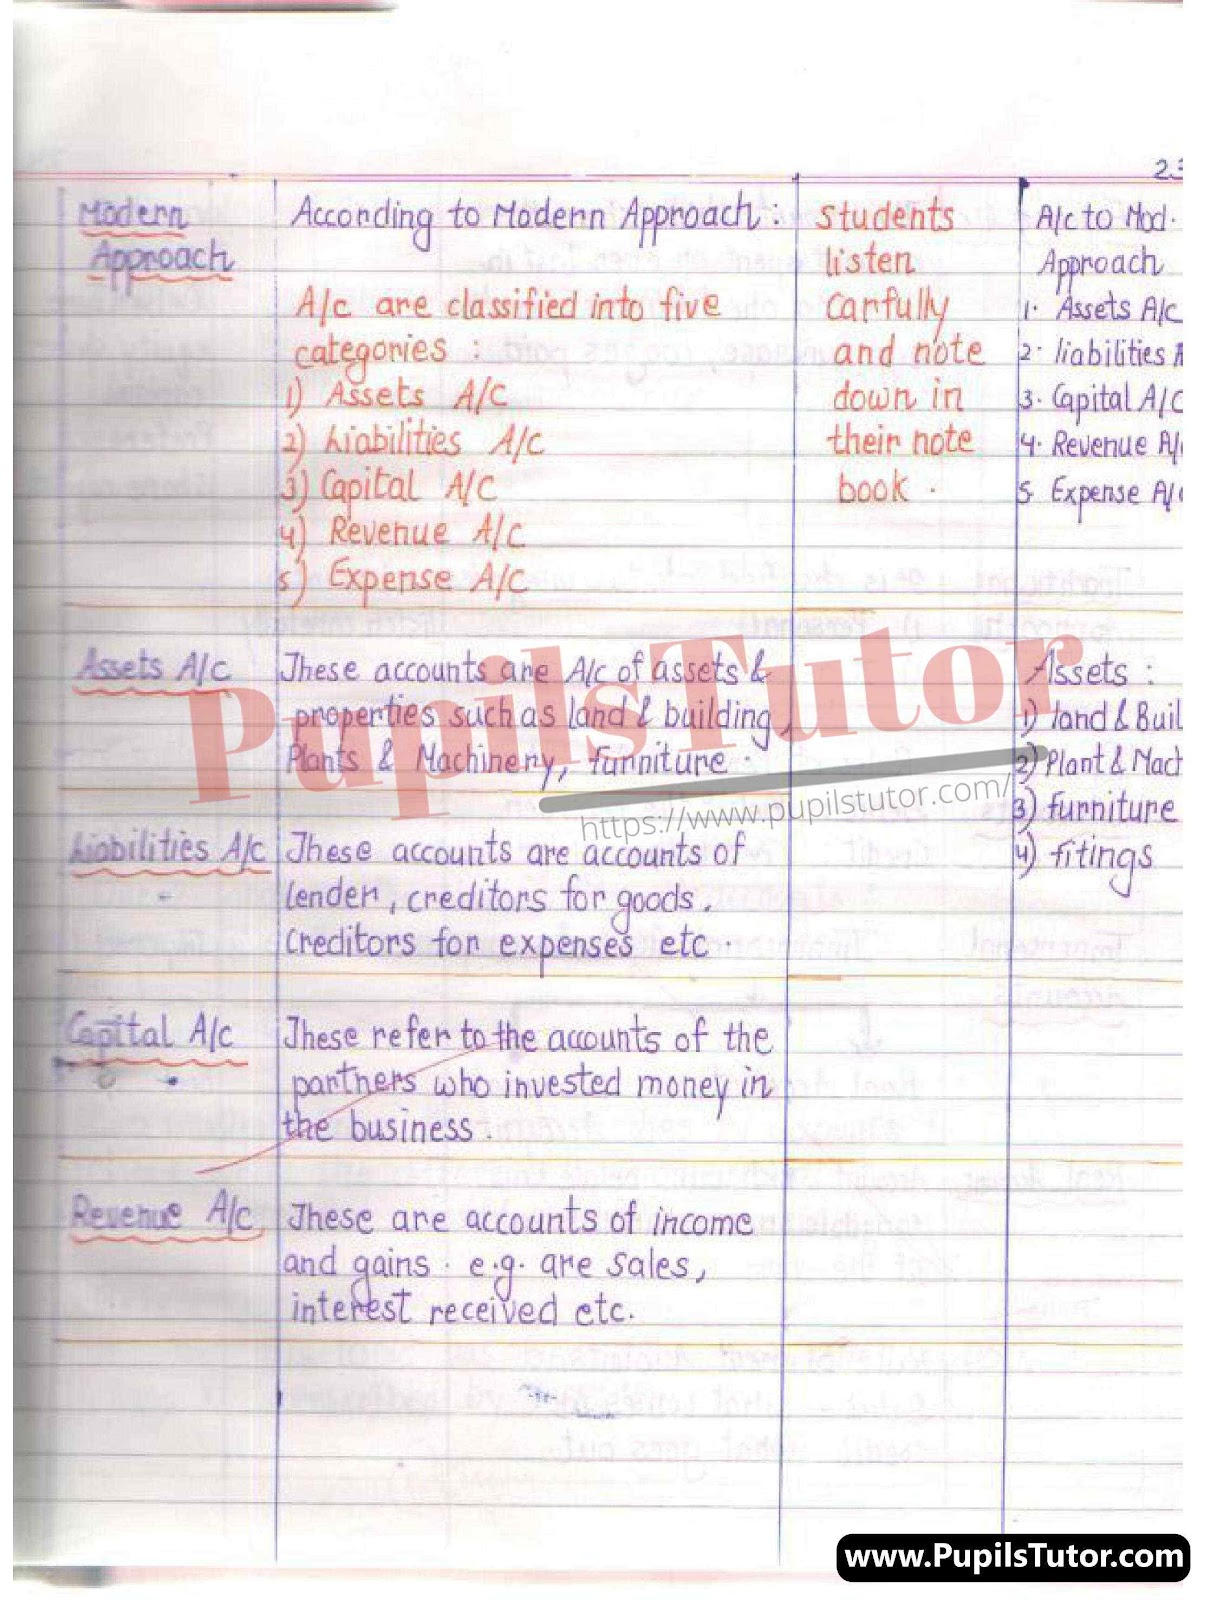 23
Modern
Approach
According to Modern Approach :
A/c are classified into five
categories :
1) Assets A/C
2) Liabilities A/C
3) Capital A/C
4) Revenue A/C
5) Expense A/C
Students
listen
carfully
and note
down in
their note
book .
A/c to Mod.
Approach
1. Assets A/C
2. liabilities A
3. Capital A/C
4. Revenue A/c
5. Expense A/c
Assets A/c
These accounts are A/c of assets &
properties such as land & building,
Plants & Machinery, furniture .
Assets :
1) land & Buil
2) Plant & Mach
3) furniture
4) fitings
Liabilities A/c
These accounts are accounts of
lender, creditors for goods,
Creditors for expenses etc
Capital A/c
These refer to the accounts of the
partners who invested money in
the business .
Revenue A/c
These are accounts of income
and gains . e.g. are sales,
interest received etc.
PupilsTutor
https://www.pupilstutor.com/
www.PupilsTutor.com